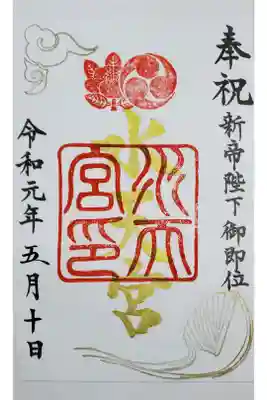 奉祝 新帝陛下御即位
水天宮
水天宮印
令和元年 五月十日